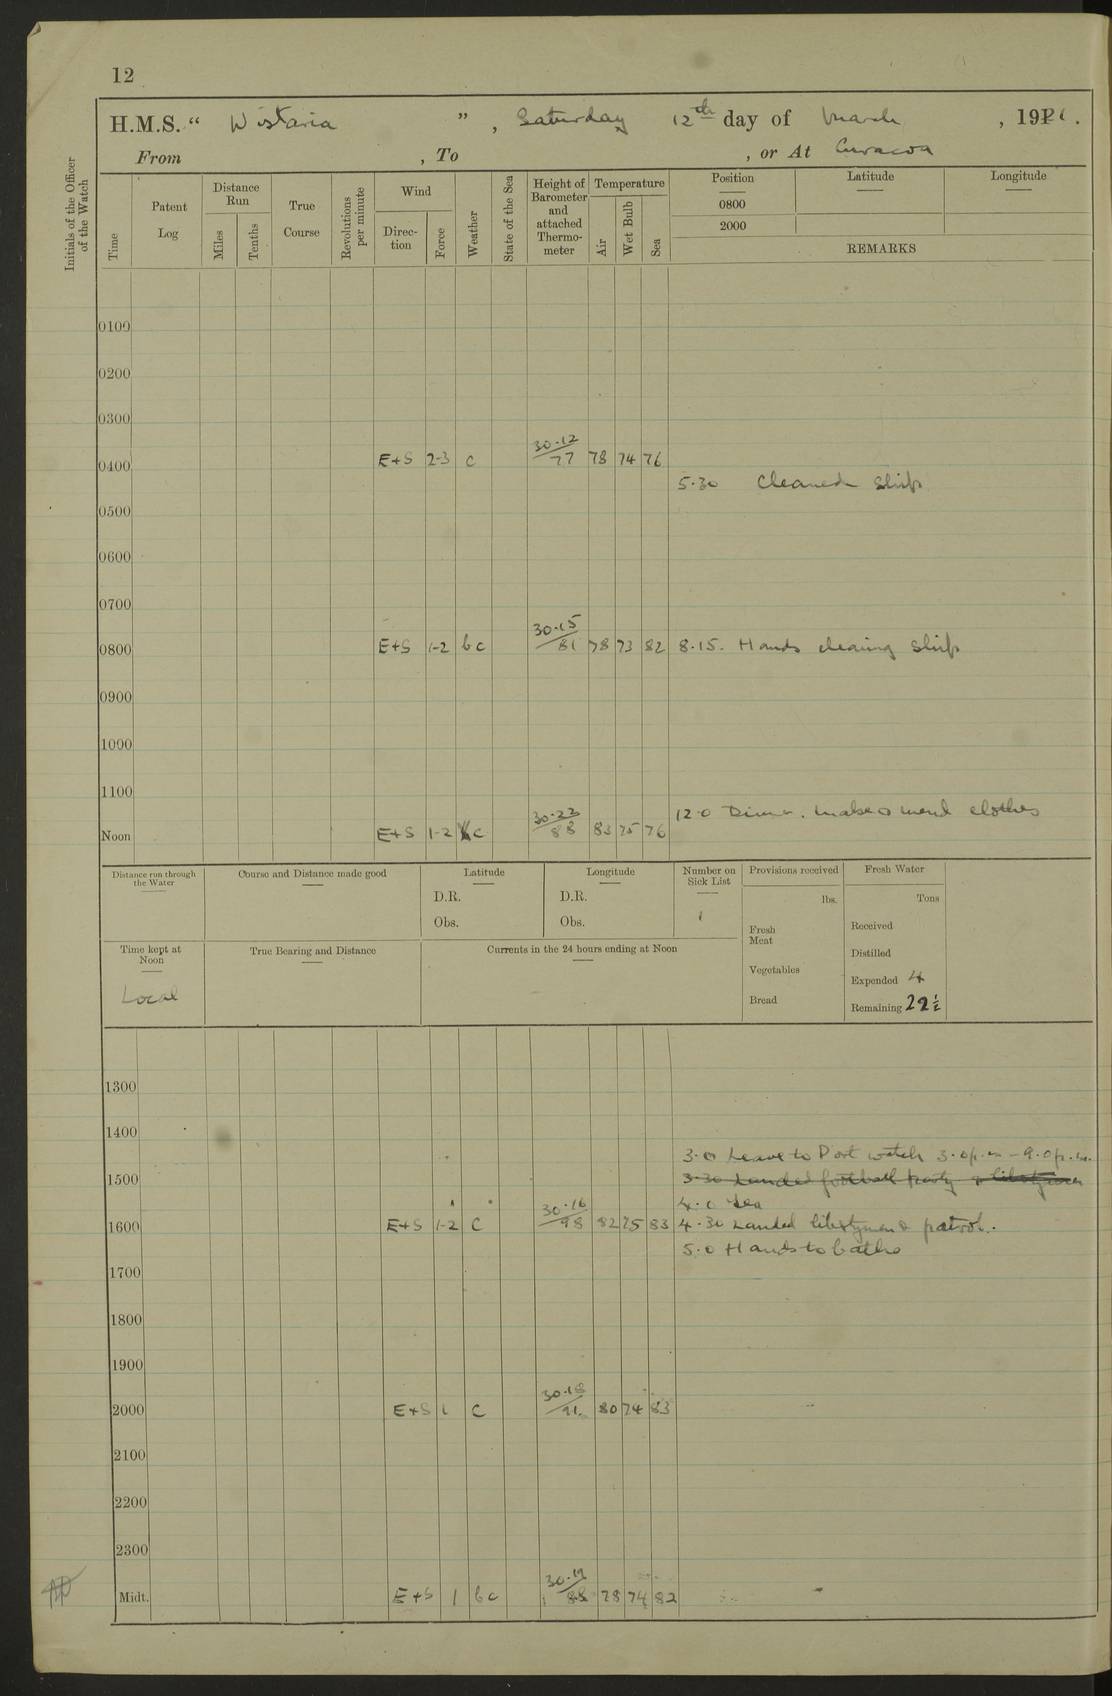 12
H.M.S. “ Wistaria ” , Saturday 12th day of March , 1921 .
From , To , or At Curacoa
Initials of the Officer of the Watch
Time
Patent Log
Distance Run
Miles
Tenths
True Course
Revolutions per minute
Wind
Direc-tion
Force
Weather
State of the Sea
Height of Barometer and attached Thermo-meter
Temperature
Air
Wet Bulb
Sea
Position
Latitude
Longitude
0800
2000
REMARKS
0100
0200
0300
0400 E+S 2-3 c 30.12/77 78 74 76
5.30 Cleaned ship
0500
0600
0700
0800 E+S 1-2 bc 30.15/81 78 73 82 8.15. Hands cleaning ship
0900
1000
1100
12.0 Dinner. make & mend clothes
Noon E+S 1-2 c 30.22/88 83 75 76
Distance run through the Water
Course and Distance made good
Latitude
D.R.
Obs.
Longitude
D.R.
Obs.
Number on Sick List
1
Provisions received
lbs.
Fresh Meat
Vegetables
Bread
Fresh Water
Tons
Received
Distilled
Expended 4
Remaining 22½
Time kept at Noon
Local
True Bearing and Distance
Currents in the 24 hours ending at Noon
1300
1400
3.0 Leave to Port watch 3.0p.m – 9.0p.m.
1500 3.30 Landed football party & libertymen
4.0 Tea
1600 E+S 1-2 c 30.16/98 82 75 83 4.30 Landed libertymen & patrol.
5.0 Hands to bathe
1700
1800
1900
2000 E+S 1 c 30.18/91 80 74 83
2100
2200
2300
Midt. E+S 1 bc 30.19/88 78 74 82